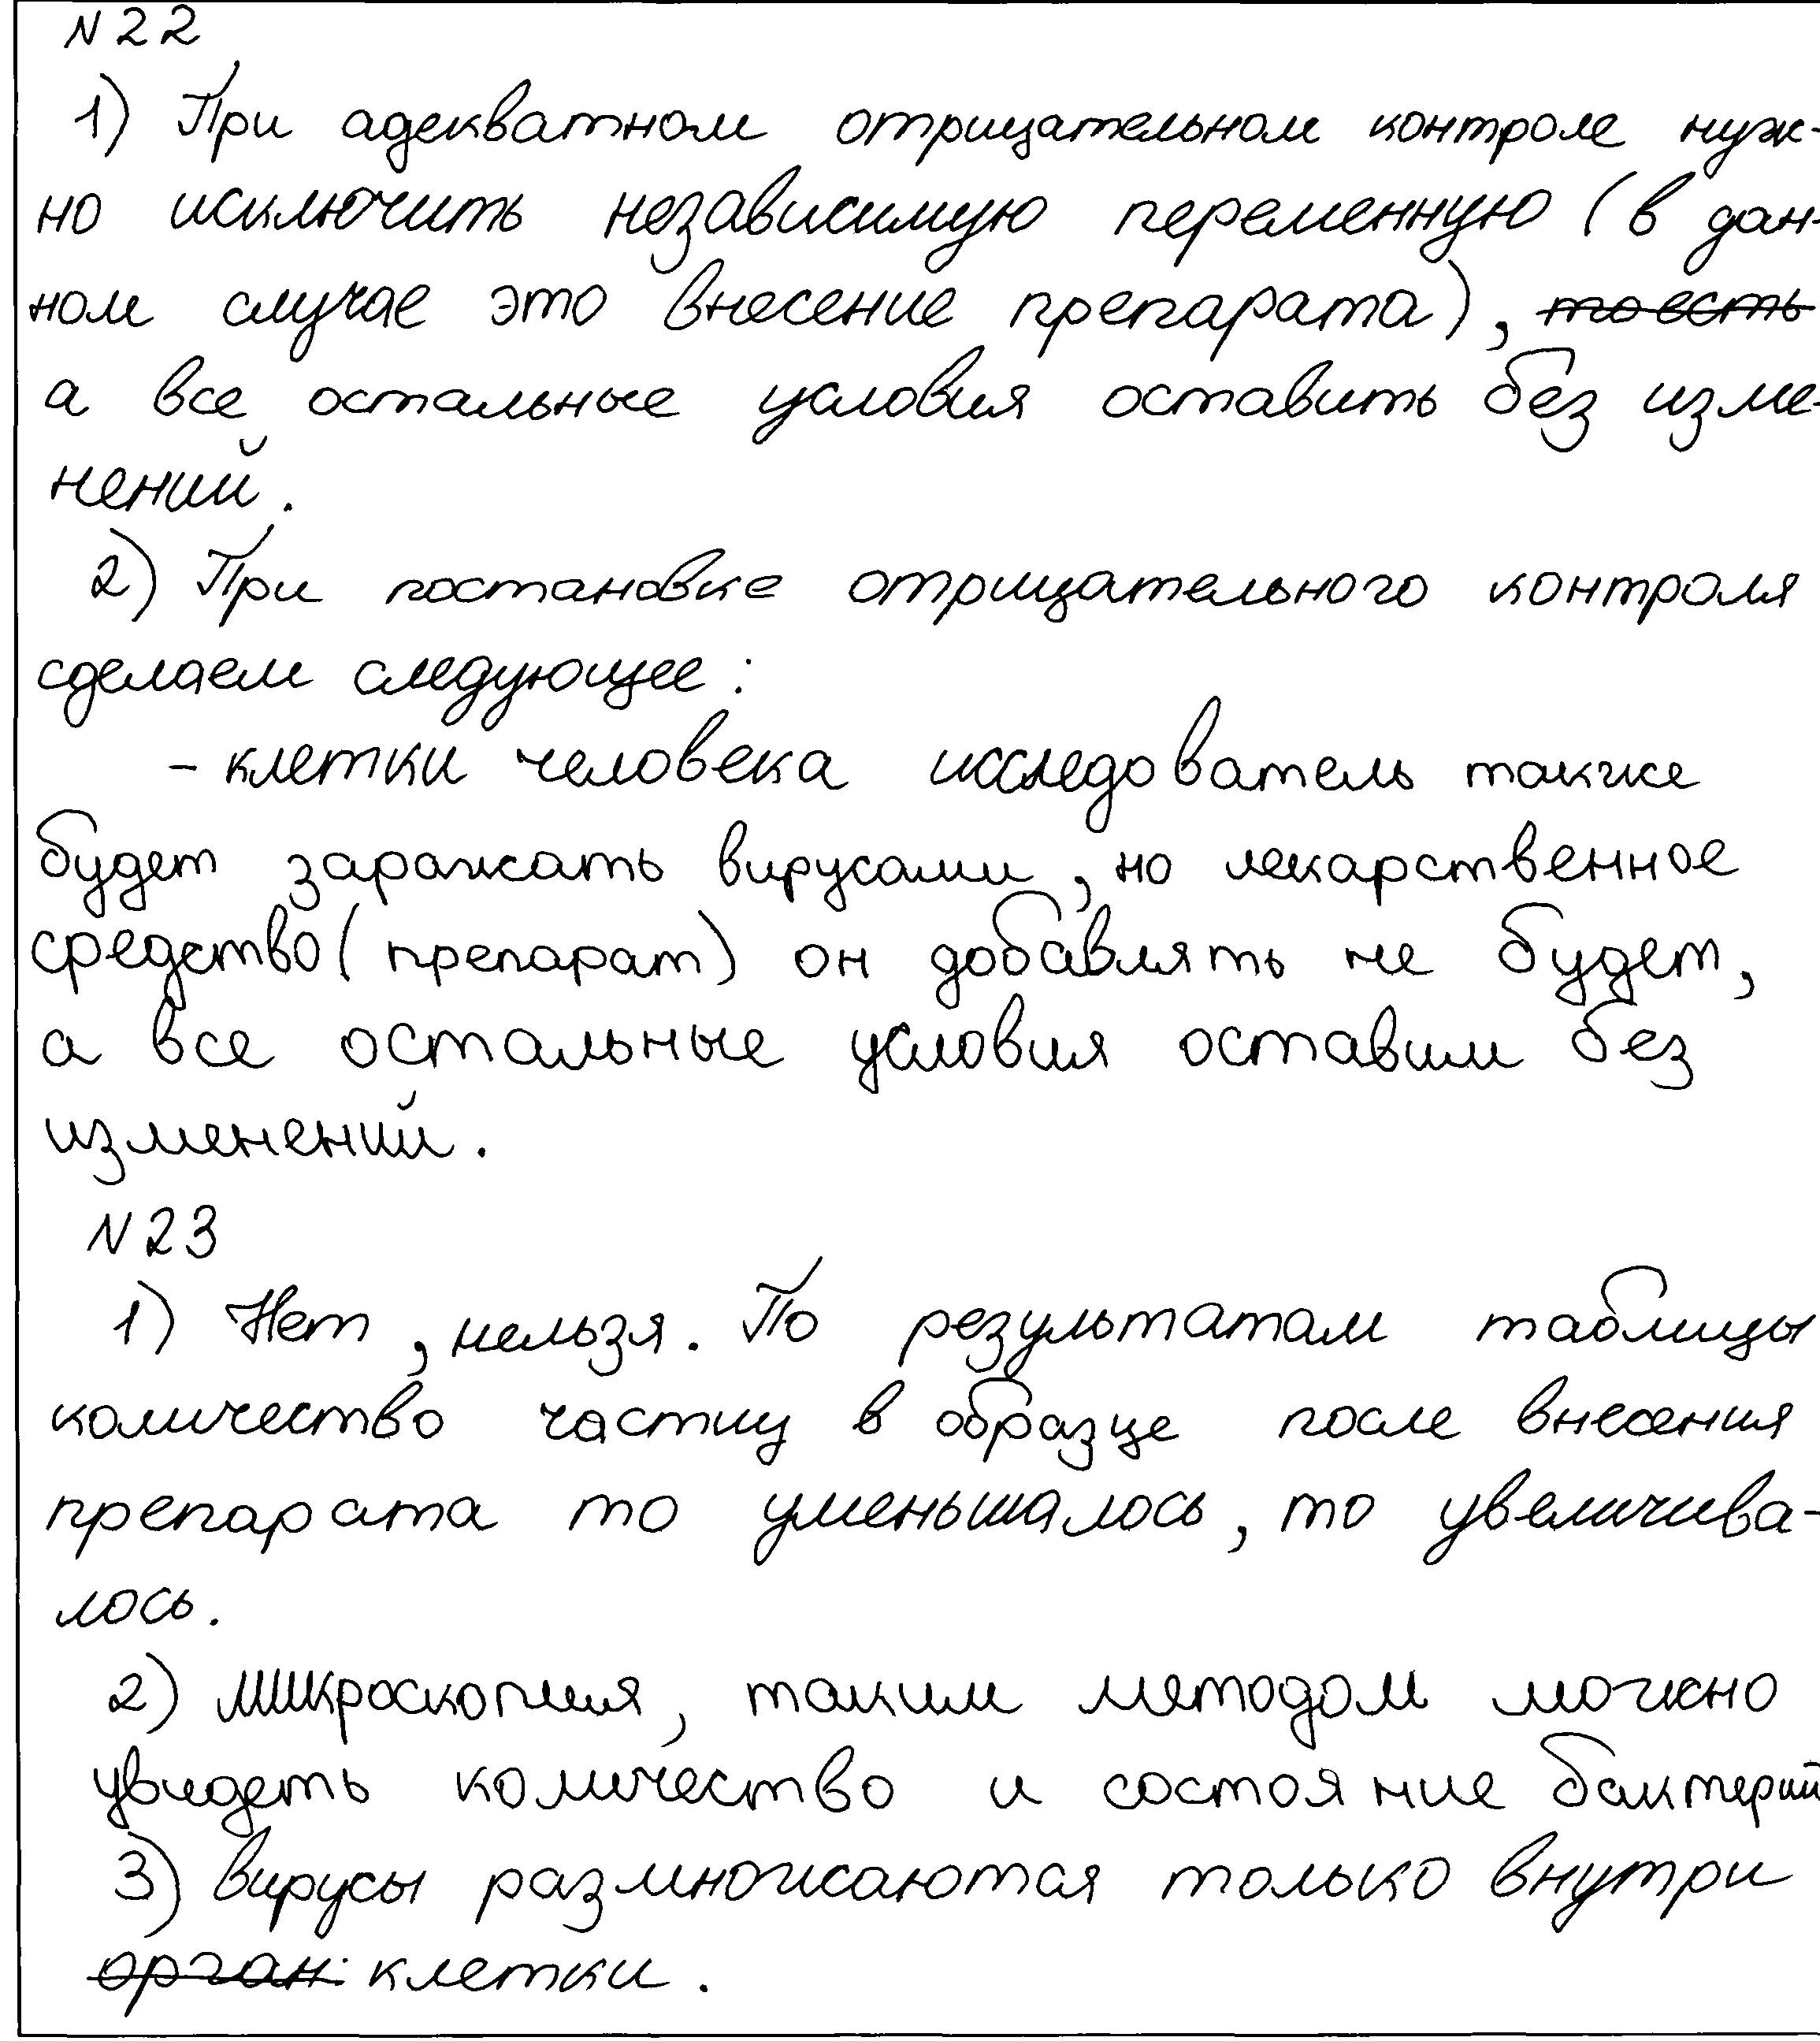 N22
1) При адекватном отрицательном контроле нуж-
но исключить независимую переменную (в дан-
ном случае это внесение препарата), ~~то есть~~
а все остальные условия оставить без изме-
нений.
2) При постановке отрицательного контроля
сделаем следующее:
- клетки человека исследователь также
будет заражать вирусами, но лекарственное
средство (препарат) он добавлять не будет,
а все остальные условия оставим без
изменений.
N23
1) Нет, нельзя. По результатам таблицы
количество частиц в образце после внесения
препарата то уменьшалось, то увеличива-
лось.
2) микроскопия, таким методом можно
увидеть количество и состояние бактерий
3) вирусы размножаются только внутри
~~орган.~~ клетки.